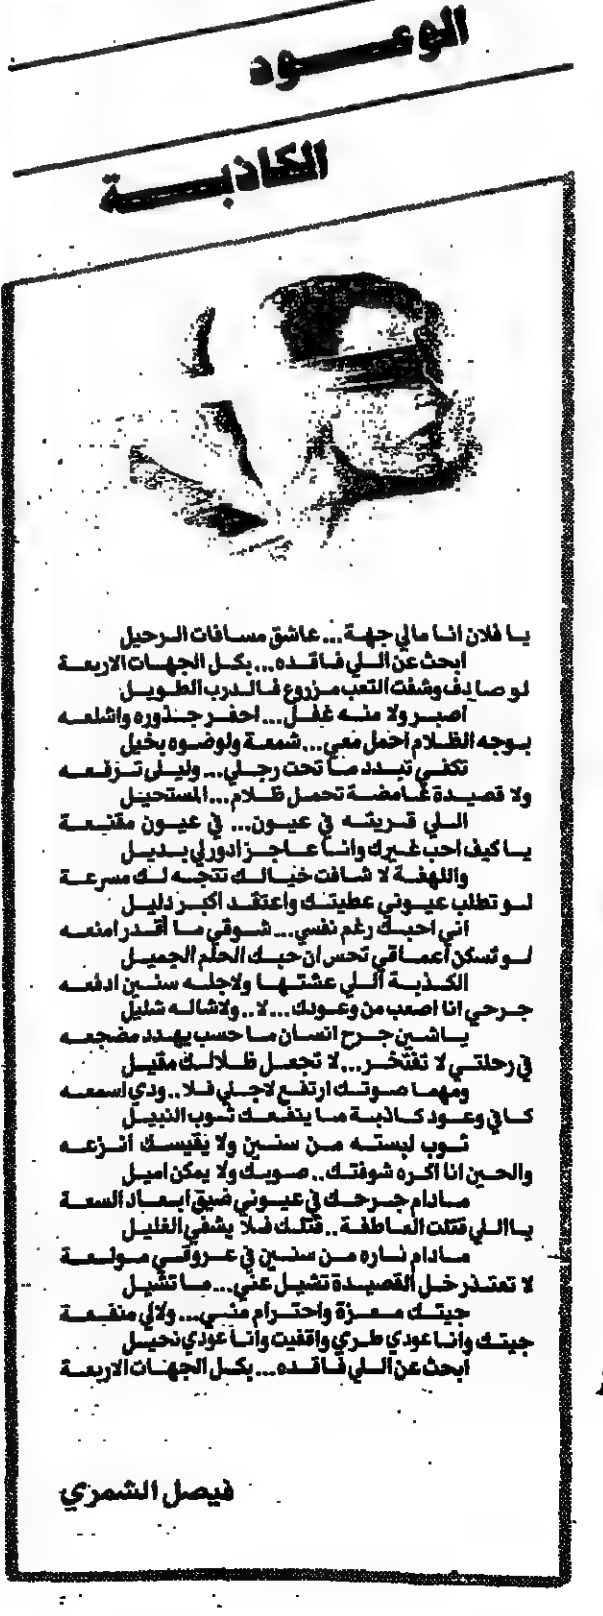 الوعــود
الكاذبــة
يا فلان انا مالي جهة... عاشق مسافات الرحيل
ابحث عن اللي فاقده... بكل الجهات الاربعة
لو صايدف وشفت التعب مزروع فالدرب الطويل
اصبر ولا منه غفل... احفر جذوره واشلعه
بوجه الظلام احمل معي... شمعة ولوضوه بخيل
تكفي تبدد ما تحت رجلي... وليلى ترفعه
ولا قصيدة غامضة تحمل ظلام... المستحيل
اللي قريته في عيون... في عيون مقنعة
يا كيف احب غيرك وانا عاجز ادور لي بديل
واللهفة لا شافت خيالك تتجه لك مسرعة
لو تطلب عيوني عطيتك واعتقد اكبر دليل
اني احبك رغم نفسي... شوقي ما أقدر امنعه
لو تسكن أعماقي تحس ان حبك الحلم الجميل
الكذبة اللي عشتها ولاجله سنين ادفعه
جرحي انا اصعب من وعودك... لا.. ولاشاله شليل
ياشين جرح انسان ما حسب يهدد مضجعه
في رحلتي لا تفتخر... لا تجعل ظلالك مقيل
ومهما صوتك ارتفع لاجلي فلا.. ودي اسمعه
كافي وعود كاذبة ما ينفعك ثوب النبيل
ثوب لبسته من سنين ولا يقيسك انزعه
والحين انا اكره شوفتك.. صوبك ولا يمكن اميل
مادام جرحك في عيوني ضيق ابعاد السعة
يا اللي قتلت العاطفة.. قتلك فلا يشفي الغليل
مادام ناره من سنين في عروقي مولعة
لا تعتذر خل القصيدة تشيل عني... ما تشيل
جيتك معزة واحترام مني... ولالي منفعة
جيتك وانا عودي طري واقفيت وانا عودي نحيل
ابحث عن اللي فاقده... بكل الجهات الاربعة
فيصل الشمري